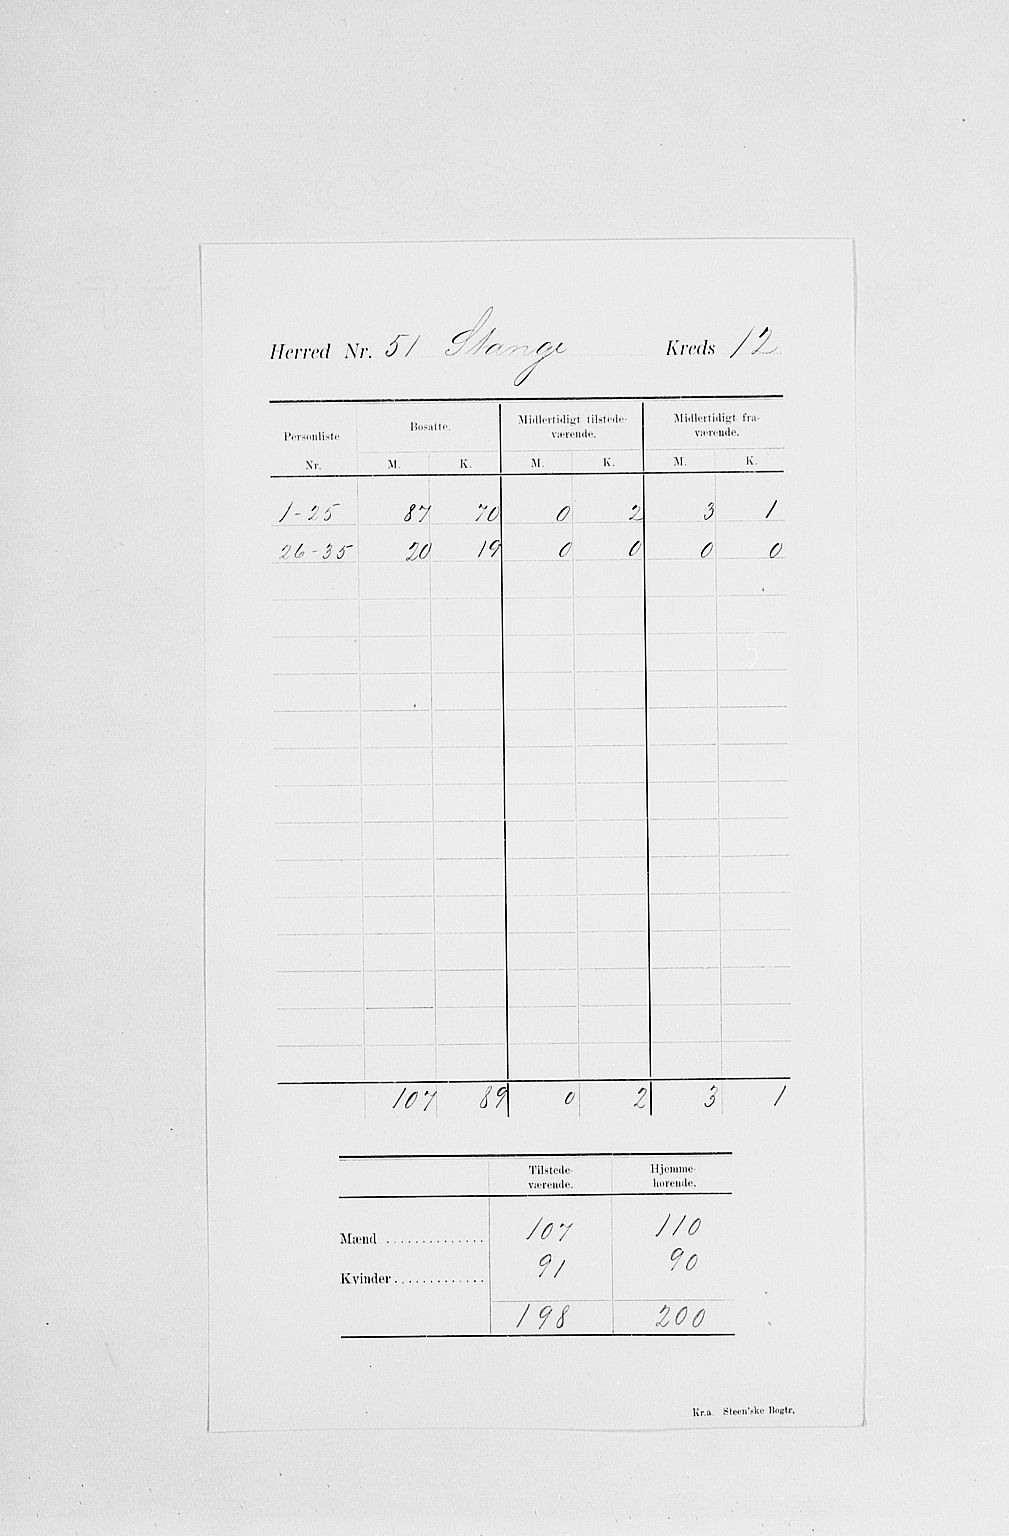 Herred Nr. 51 Stange Kreds 12
Personliste Nr. Bosatte. Midlertidigt tilstede- værende. Midlertidigt fra- værende.
M. K. M. K. M. K.
1-25 87 70 0 2 3 1
26-35 20 19 0 0 0 0
107 89 0 2 3 1
Tilstede- værende. Hjemme- hørende.
Mænd .............. 107 110
Kvinder............. 91 90
198 200
Kr.a. Steen'ske Bogtr.